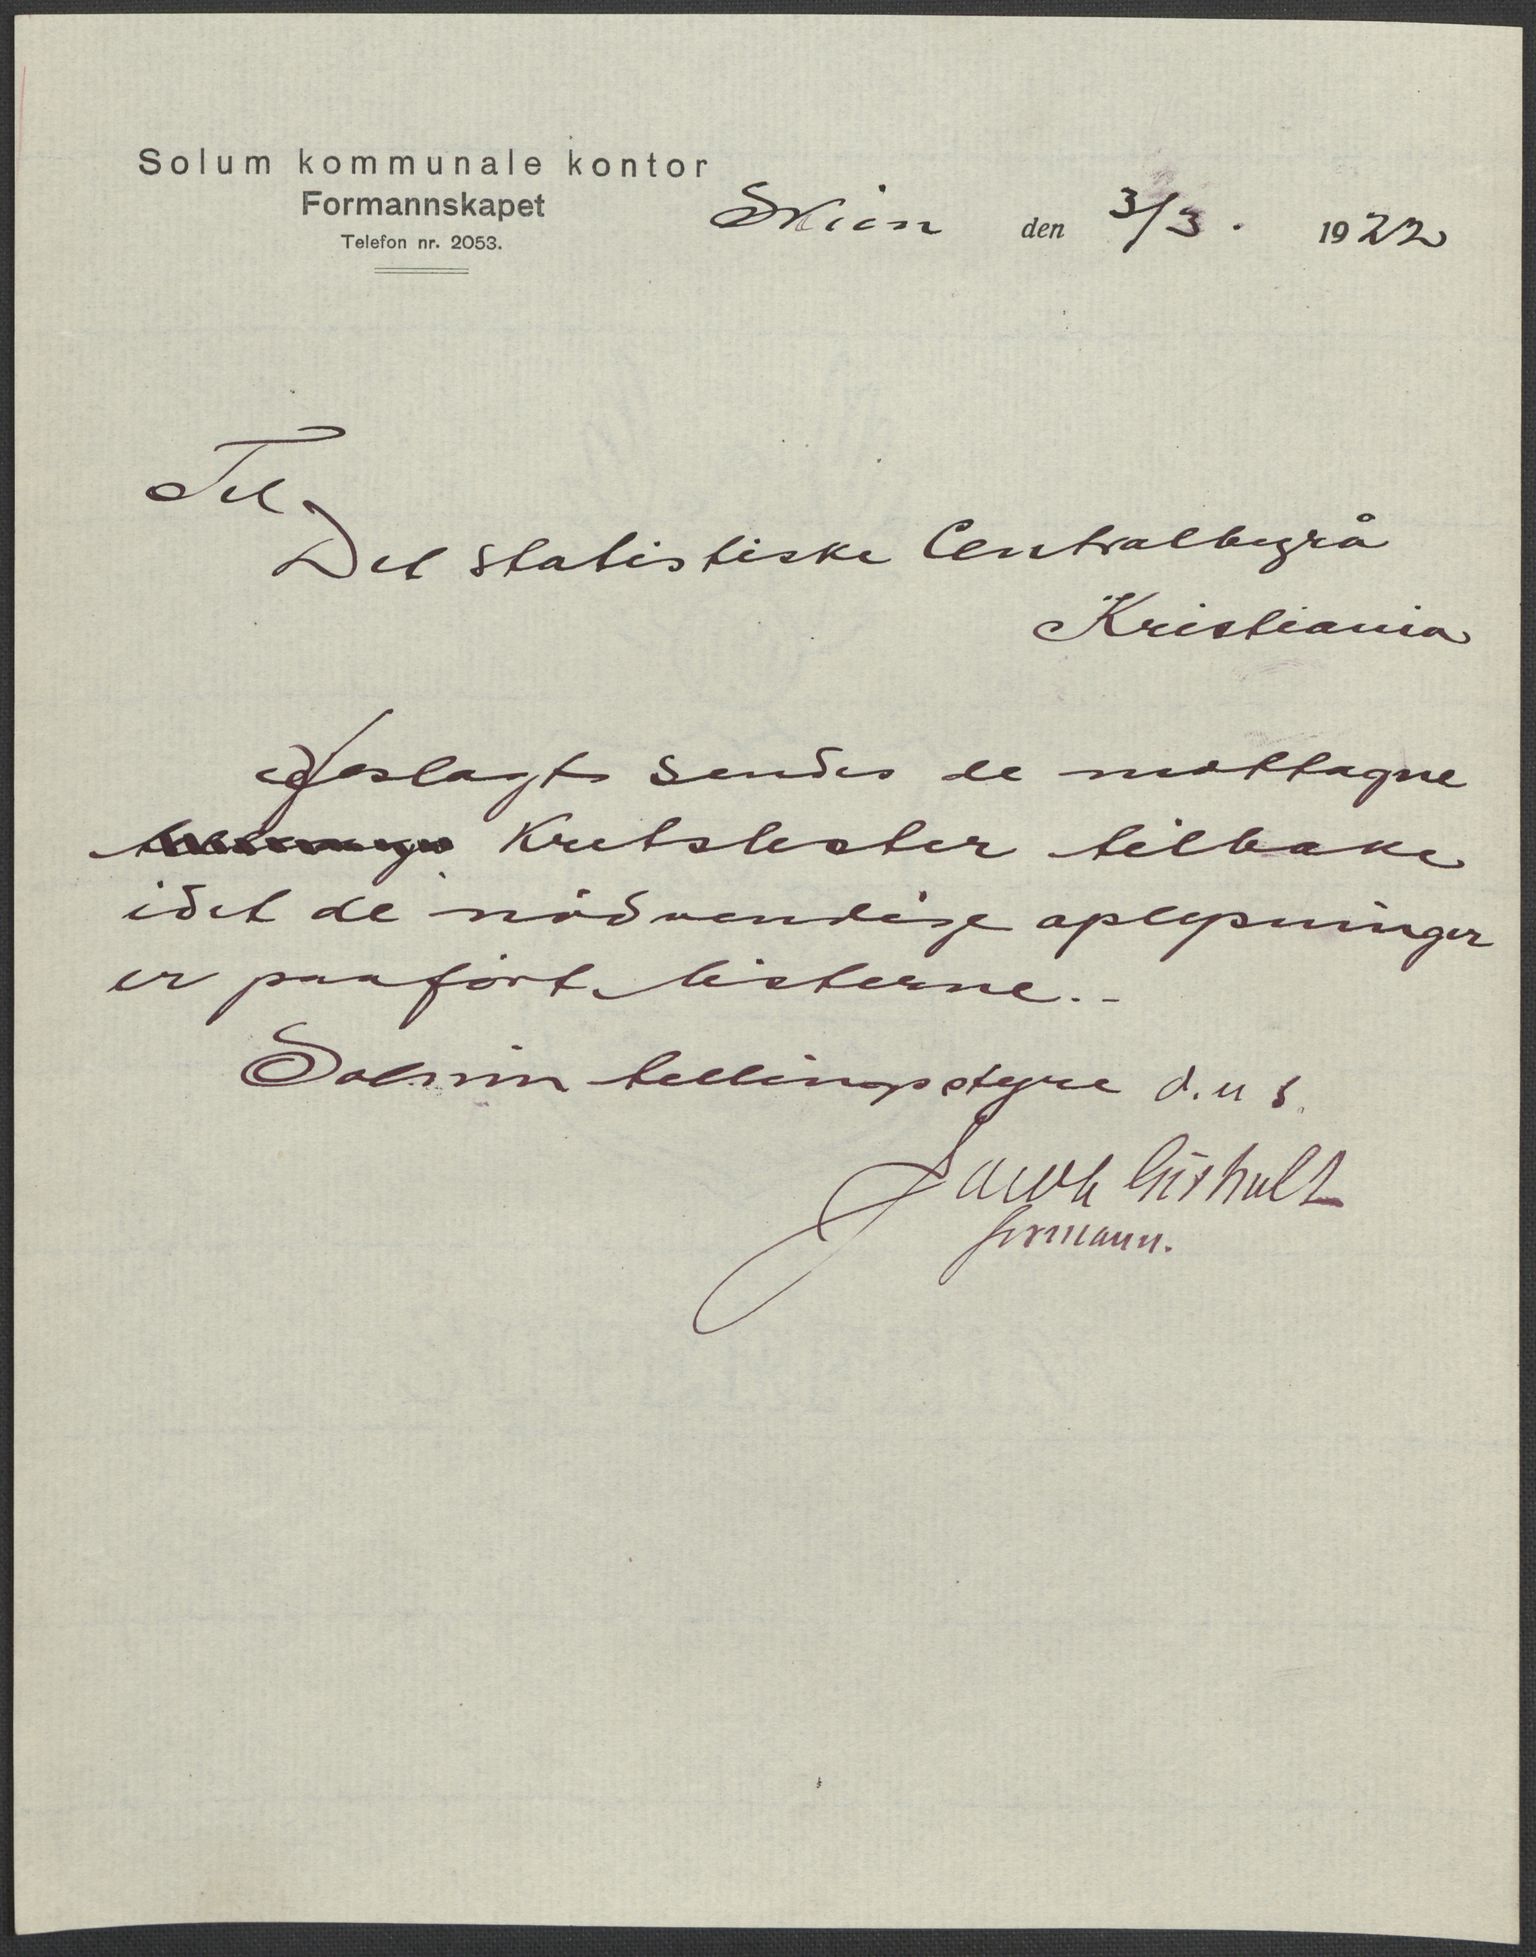 Solum kommunale kontor
Formannskapet
Telefon nr. 2053.
Skien den 3/3. 1922
Til
Det statistiske Centralbyrå
Kristiania
Vedlagt sendes de mottagne
Kretslister tilbake
idet de nödvendige oplysninger
er paafört listerne.-
Solum tellingsstyre d. u s.
Jacob Gisholt
formann.